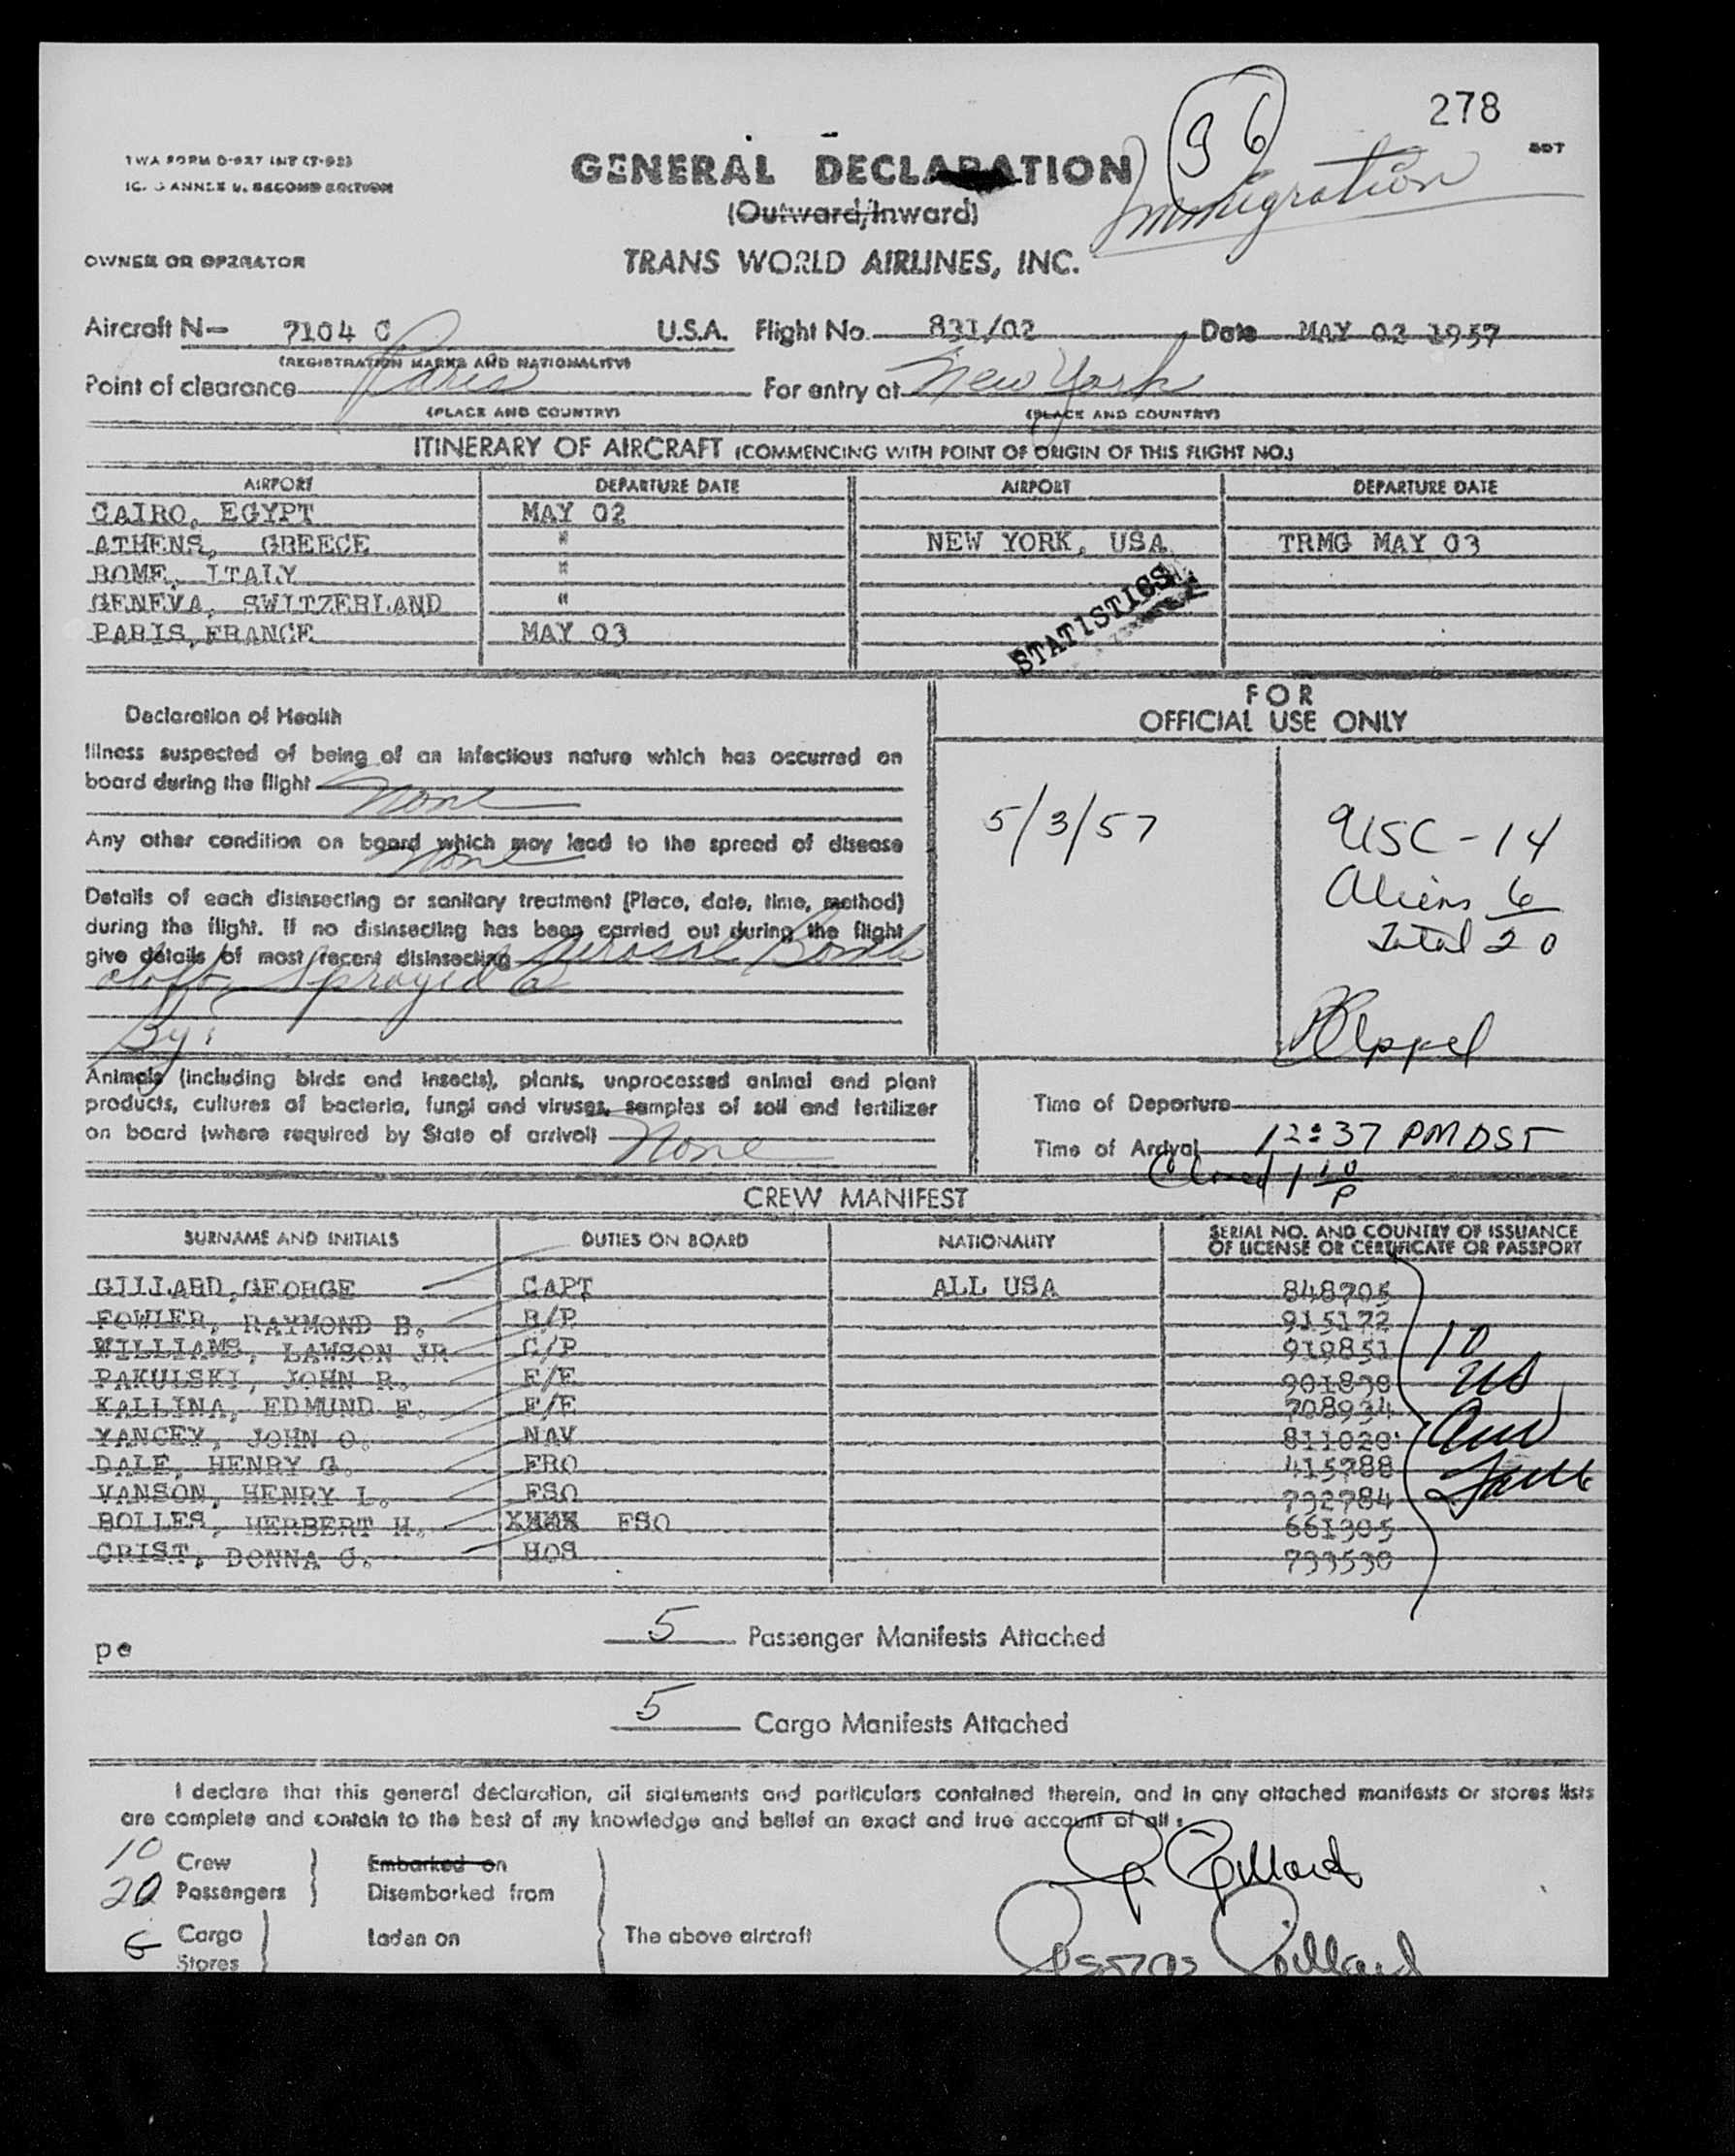 278
36
Immigration
TWA FORM D-927 INT (7-53)
ANNEX 9, SECOND EDITION
GENERAL DECLARATION
(Outward/Inward)
OWNER OR OPERATOR
TRANS WORLD AIRLINES, INC.
Aircraft N- 7104 C U.S.A. Flight No. 831/02 Date MAY 02 1957
(REGISTRATION MARKS AND NATIONALITY)
Point of clearance Paris For entry at New York
(PLACE AND COUNTRY) (PLACE AND COUNTRY)
ITINERARY OF AIRCRAFT (COMMENCING WITH POINT OF ORIGIN OF THIS FLIGHT NO.)
AIRPORT DEPARTURE DATE AIRPORT DEPARTURE DATE
CAIRO, EGYPT MAY 02
ATHENS, GREECE " NEW YORK, USA TRMG MAY 03
ROME, ITALY "
GENEVA, SWITZERLAND "
PARIS, FRANCE MAY 03
STATISTICS
Declaration of Health
Illness suspected of being of an infectious nature which has occurred on
board during the flight None
Any other condition on board which may lead to the spread of disease
None
Details of each disinsecting or sanitary treatment (Place, date, time, method)
during the flight. If no disinsecting has been carried out during the flight
give details of most recent disinsecting Aerosol Bomb
Sprayed @
By:
FOR
OFFICIAL USE ONLY
5/3/57
USC - 14
Aliens 6
Total 20
Animals (including birds and insects), plants, unprocessed animal and plant
products, cultures of bacteria, fungi and viruses, samples of soil and fertilizer
on board (where required by State of arrival) None
Time of Departure
Time of Arrival 12:37 PM DST
Closed 1 10 P
CREW MANIFEST
SURNAME AND INITIALS DUTIES ON BOARD NATIONALITY SERIAL NO. AND COUNTRY OF ISSUANCE
OF LICENSE OR CERTIFICATE OR PASSPORT
GILLARD, GEORGE CAPT ALL USA 848705
FOWLER, RAYMOND B. R/P 915172
WILLIAMS, LAWSON JR C/P 919851
PAKULSKI, JOHN R. F/E
KALLINA, EDMUND F. F/E 708934
YANCEY, JOHN O. NAV 811020
DALE, HENRY G. FRO 415788
VANSON, HENRY L. FSO 792784
BOLLES, HERBERT H. XXXX FSO 661305
CRIST, DONNA J. HOS 793530
10
US
pe
5 Passenger Manifests Attached
5 Cargo Manifests Attached
I declare that this general declaration, all statements and particulars contained therein, and in any attached manifests or stores lists
are complete and contain to the best of my knowledge and belief an exact and true account of all:
10 Crew Embarked on
20 Passengers Disembarked from
Cargo Laden on The above aircraft
Stores
G. Gillard
George Gillard